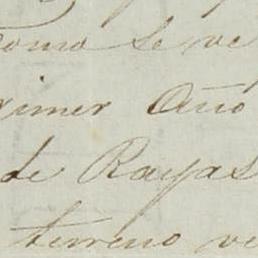 como se ve
rimer Año
de Rayas
terreno ve